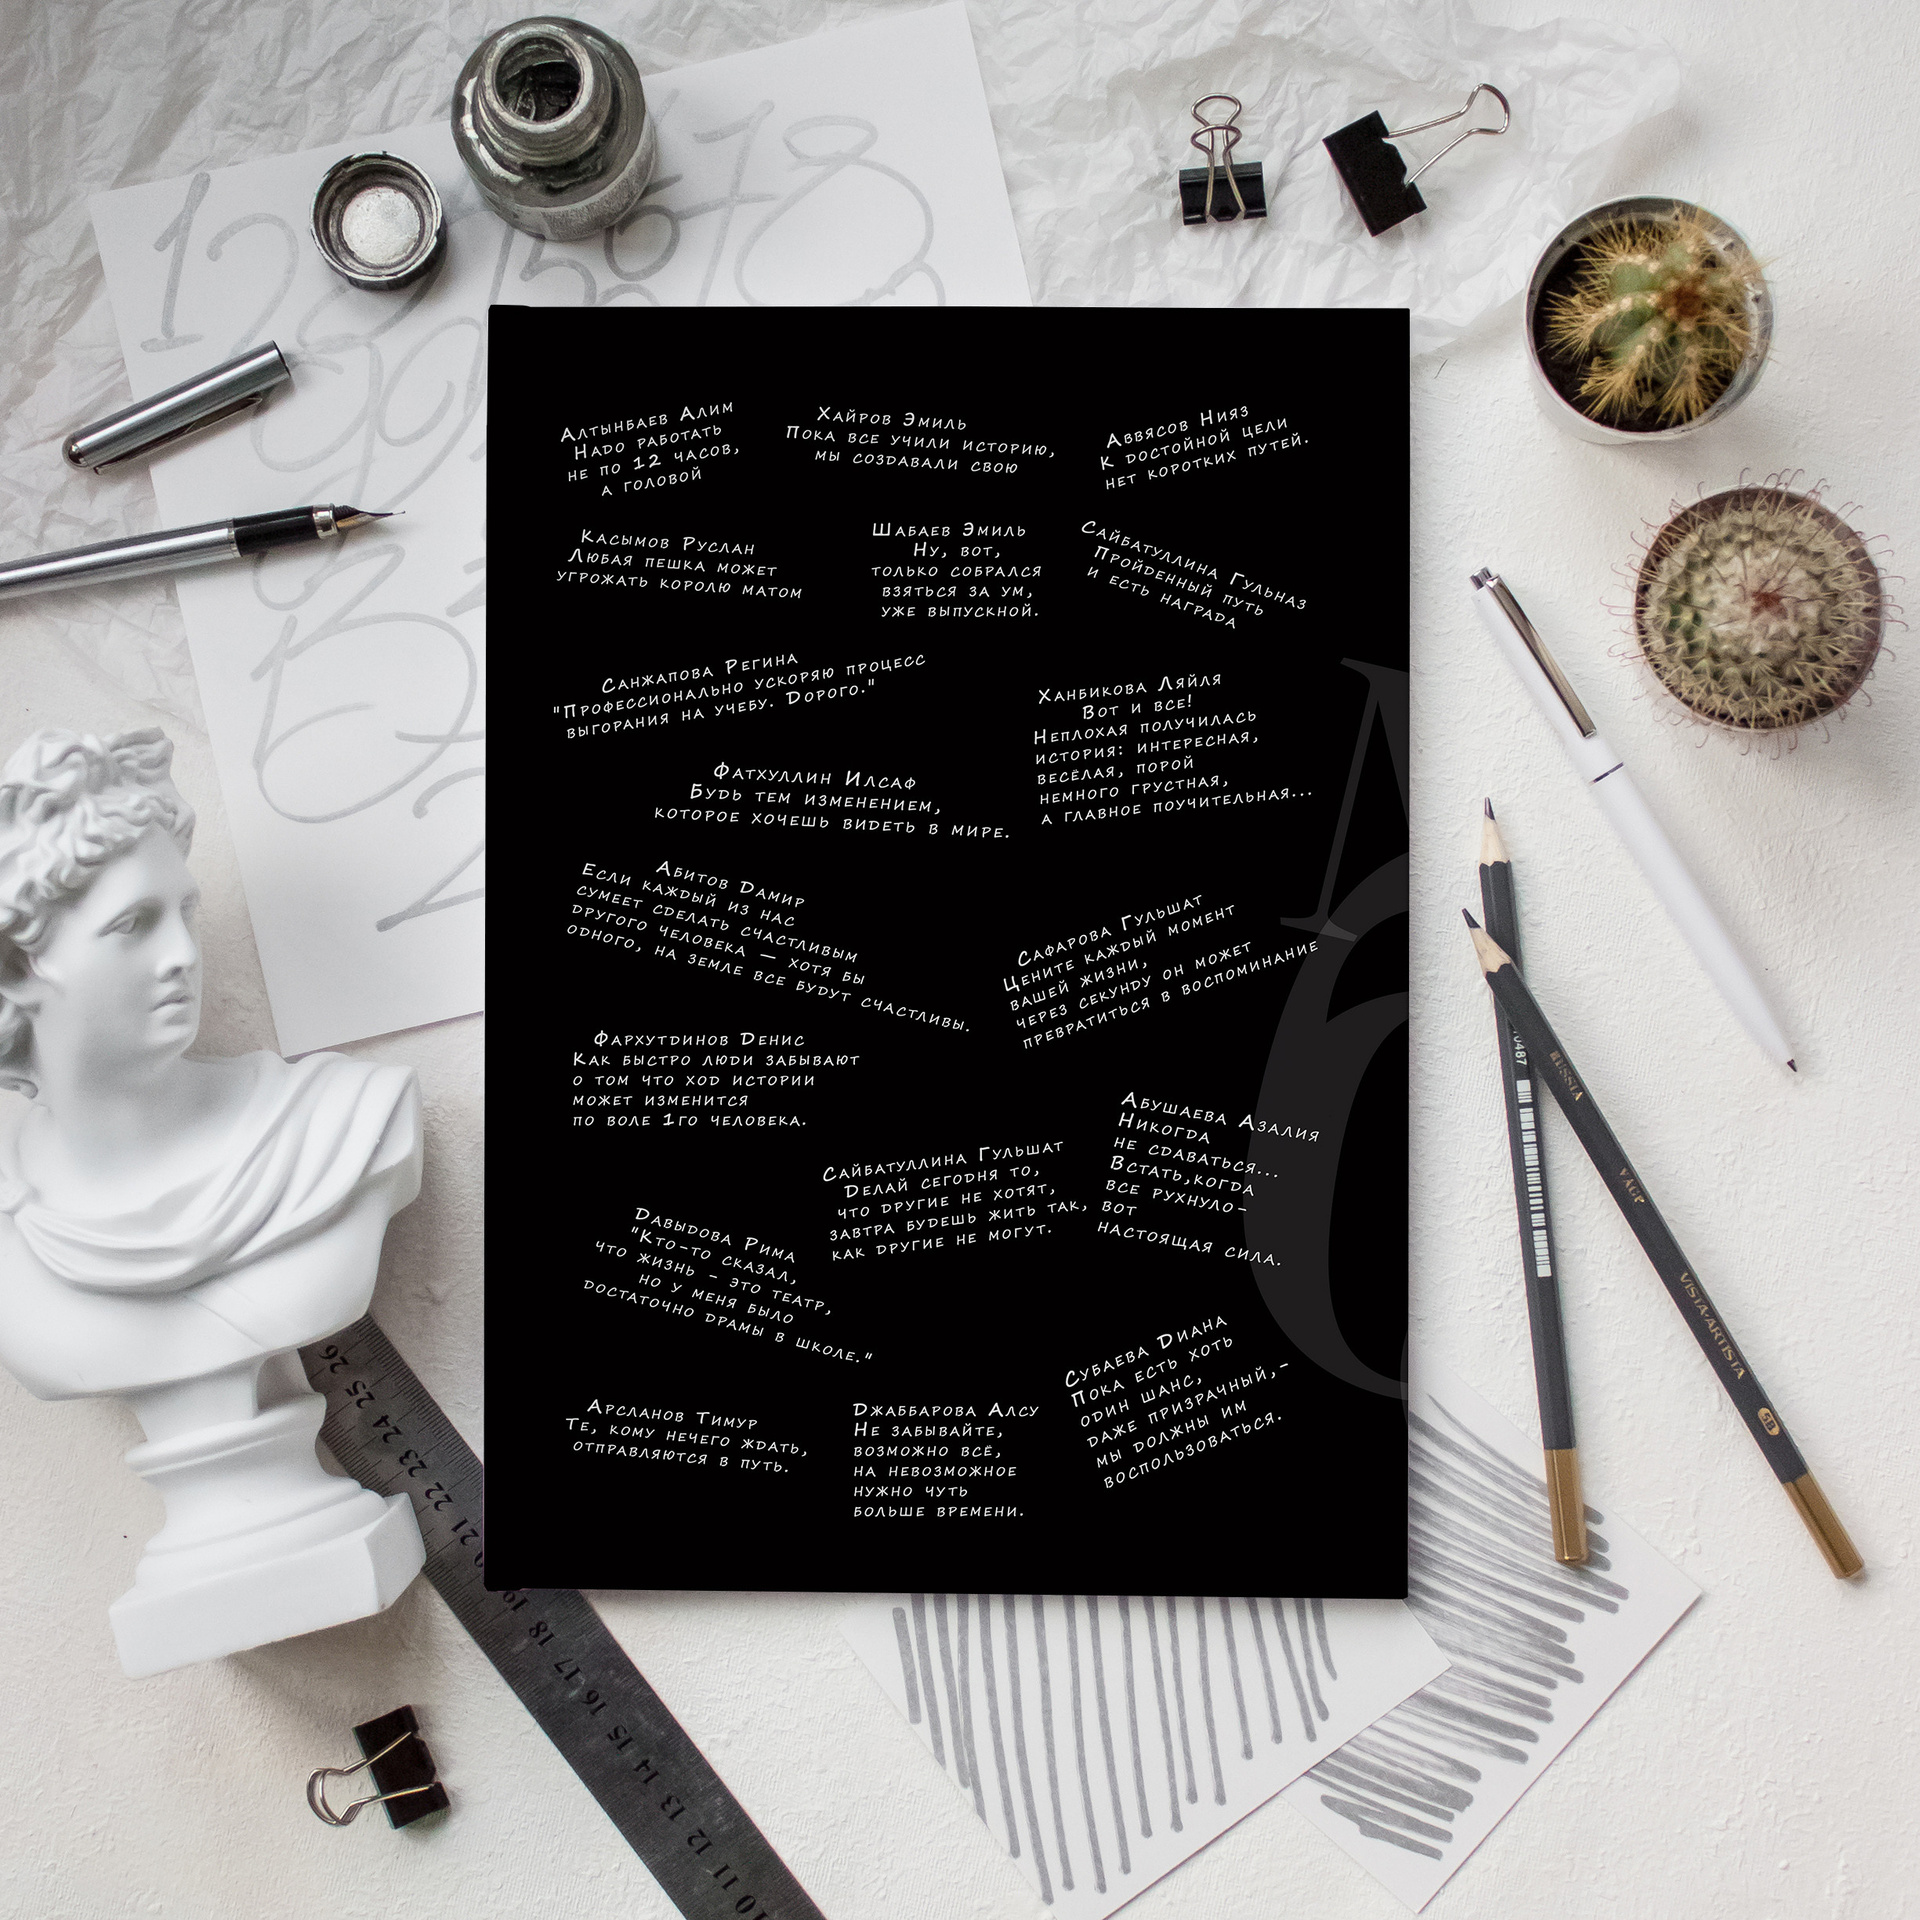 Алтынбаев Алим
Надо работать
не по 12 часов,
а головой
Хайров Эмиль
Пока все учили историю,
мы создавали свою
Аввясов Нияз
К достойной цели
нет коротких путей.
Касымов Руслан
Любая пешка может
угрожать королю матом
Шабаев Эмиль
Ну, вот,
только собрался
взяться за ум,
уже выпускной.
Сайбатуллина Гульназ
Пройденный путь
и есть награда
Санжапова Регина
"Профессионально ускоряю процесс
выгорания на учебу. Дорого."
Ханбикова Ляйля
Вот и все!
Неплохая получилась
история: интересная,
весёлая, порой
немного грустная,
а главное поучительная...
Фатхуллин Илсаф
Будь тем изменением,
которое хочешь видеть в мире.
Абитов Дамир
Если каждый из нас
сумеет сделать счастливым
другого человека — хотя бы
одного, на земле все будут счастливы.
Сафарова Гульшат
Цените каждый момент
вашей жизни,
через секунду он может
превратиться в воспоминание
Фархутдинов Денис
Как быстро люди забывают
о том что ход истории
может изменится
по воле 1го человека.
Абушаева Азалия
Никогда
не сдаваться...
Встать,когда
все рухнуло-
вот
настоящая сила.
Сайбатуллина Гульшат
Делай сегодня то,
что другие не хотят,
завтра будешь жить так,
как другие не могут.
Давыдова Рима
"Кто-то сказал,
что жизнь - это театр,
но у меня было
достаточно драмы в школе."
Субаева Диана
Пока есть хоть
один шанс,
даже призрачный,-
мы должны им
воспользоваться.
Арсланов Тимур
Те, кому нечего ждать,
отправляются в путь.
Джаббарова Алсу
Не забывайте,
возможно всё,
на невозможное
нужно чуть
больше времени.
0487
RUSSIA
VAGR
VISTA-ARTISTA
5B
26
25
24
23
22
21
19
18
17
16
15
14
13
12
11
10